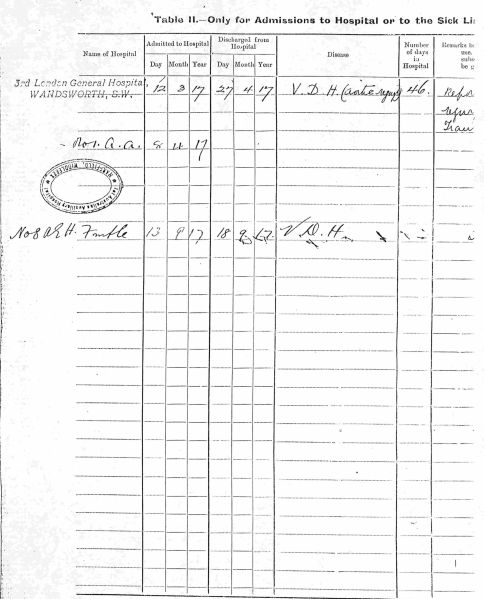 Table II.—Only for Admissions to Hospital or to the Sick Li
Name of Hospital
Admitted to Hospital
Discharged from Hospital
Disease
Number of days in Hospital
Remarks
Day Month Year Day Month Year
3rd London General Hospital, WANDSWORTH, S.W. 12 3 17 27 4 17 V. D. H. 46.
No 1. A. A. 8 4 17
1st Australian Auxiliary Hospital HAREFIELD, MIDDLESEX
13 9 17 18 9 17 V. D. H.